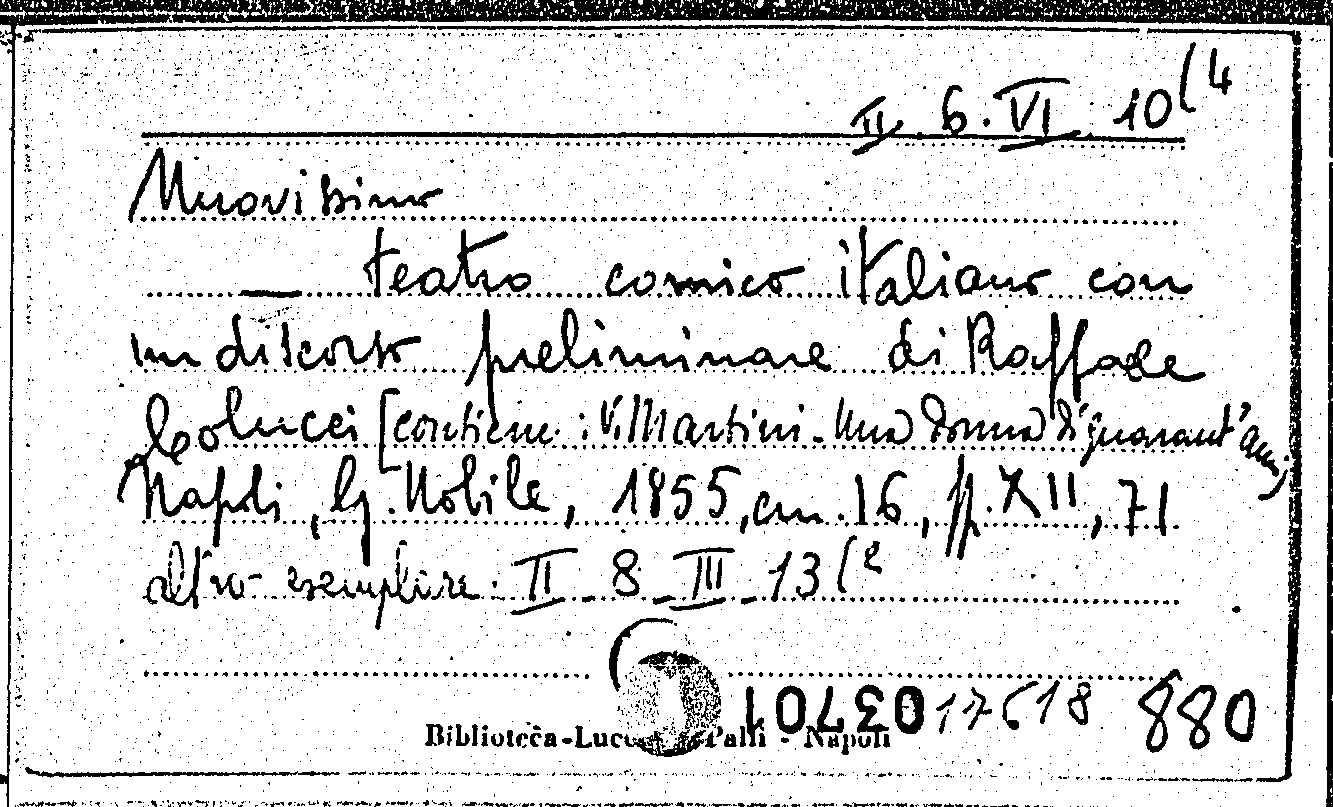 II. 6. VI. 10(4
Nuovissimo
— teatro comico italiano con
un discorso preliminare di Raffaele
Colucci [contiene: V. Martini - Una donna di quarant'anni]
Napoli, G. Nobile, 1855, cm. 16, pp. XII, 71
altro esemplare: II - 8 - III - 13(2
03701 17618 880
Biblioteca - Palli - Napoli